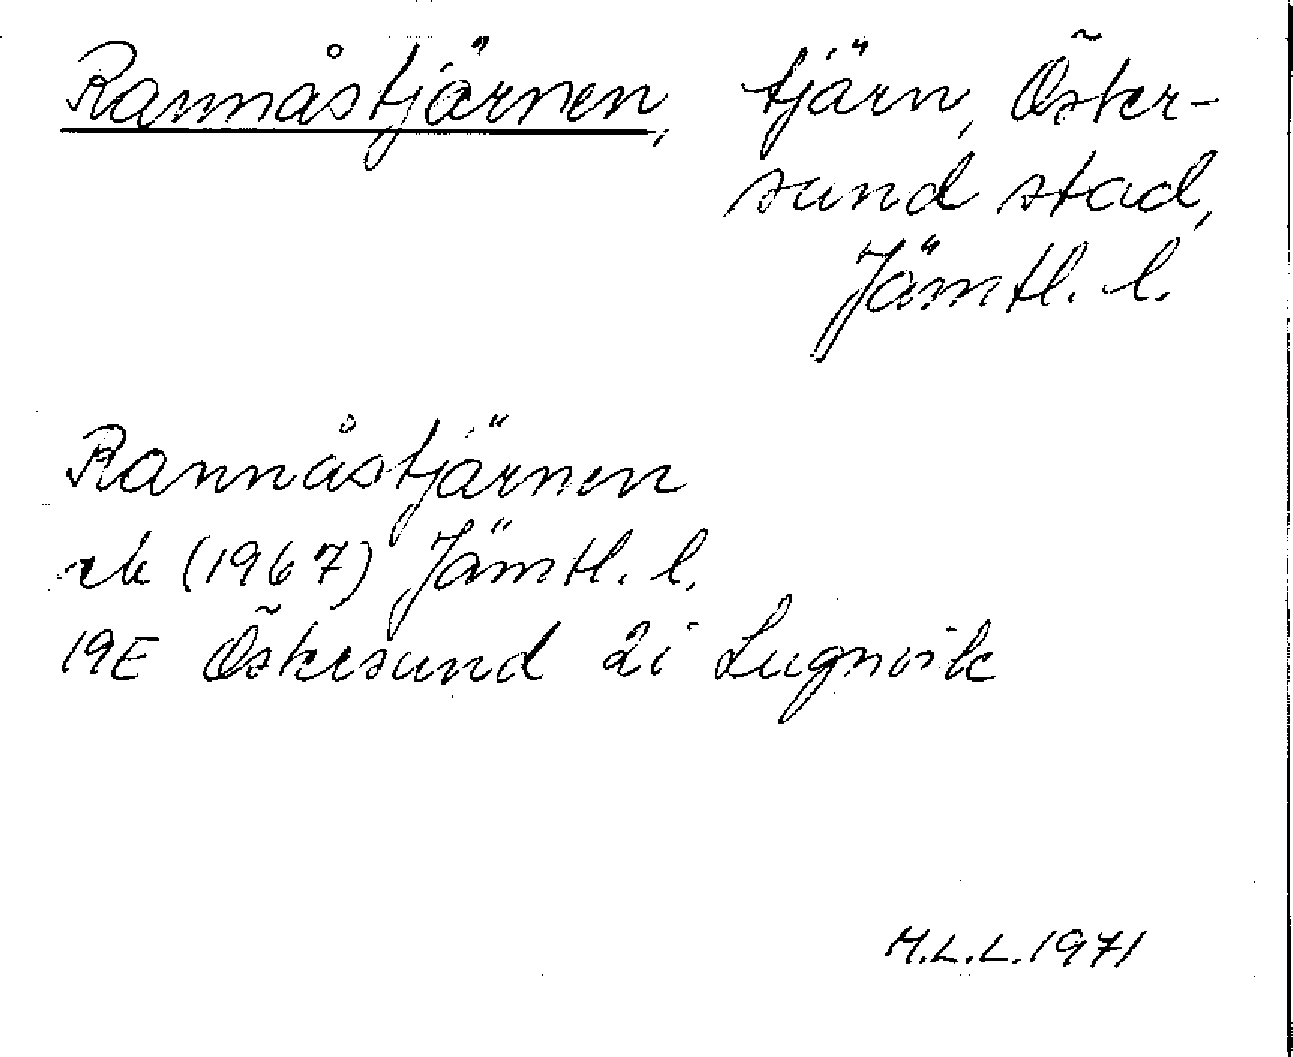 Rannåstjärnen, tjärn, Öster-
sund stad,
Jämtl. l.
Rannåstjärnen
rk (1967) Jämtl. l.
19E Östersund 2i Lugnvik
M.L.L. 1971